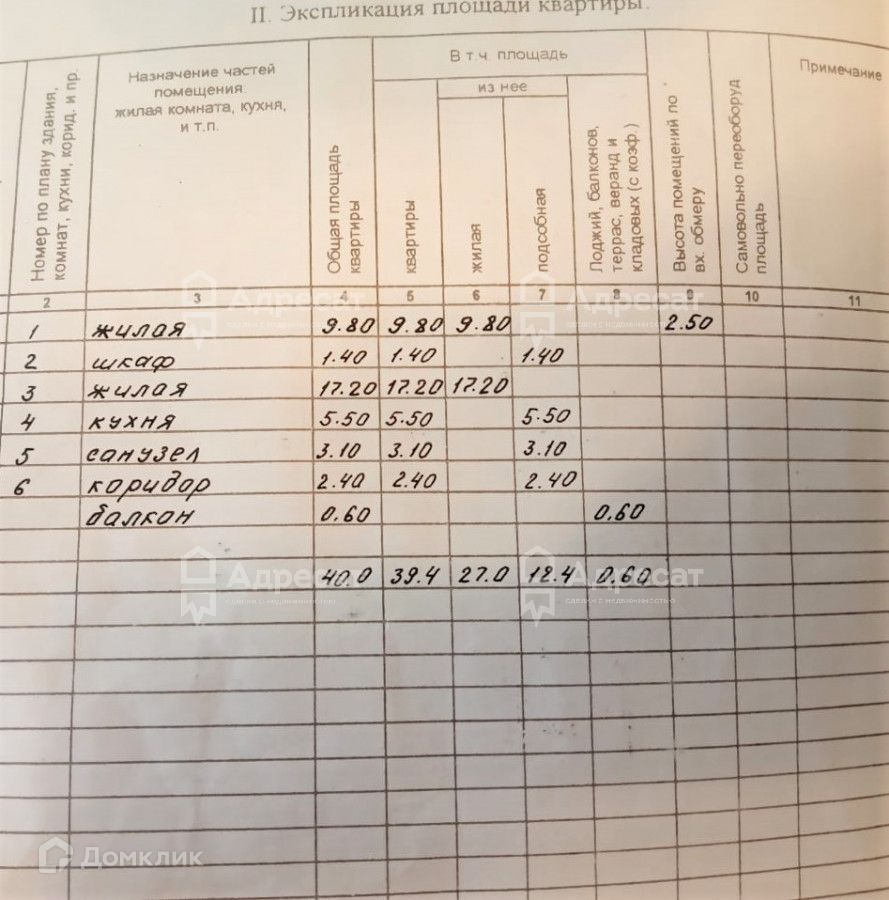 II. Экспликация площади квартиры.
Номер по плану здания, комнат, кухни, корид. и пр.
Назначение частей помещения жилая комната, кухня, и т.п.
Общая площадь квартиры
В т.ч. площадь
квартиры
из нее
жилая
подсобная
Лоджий, балконов, террас, веранд и кладовых (с коэф.)
Высота помещений по вх. обмеру
Самовольно переоборуд площадь
Примечание
2 3 4 5 6 7 8 9 10 11
1 жилая 9.80 9.80 9.80 2.50
2 шкаф 1.40 1.40 1.40
3 жилая 17.20 17.20 17.20
4 кухня 5.50 5.50 5.50
5 санузел 3.10 3.10 3.10
6 коридор 2.40 2.40 2.40
балкон 0.60 0.60
40.0 39.4 27.0 12.4 0.60
Адресат
сделки с недвижимостью
Адресат
сделки с недвижимостью
Адресат
сделки с недвижимостью
Адресат
сделки с недвижимостью
Домклик